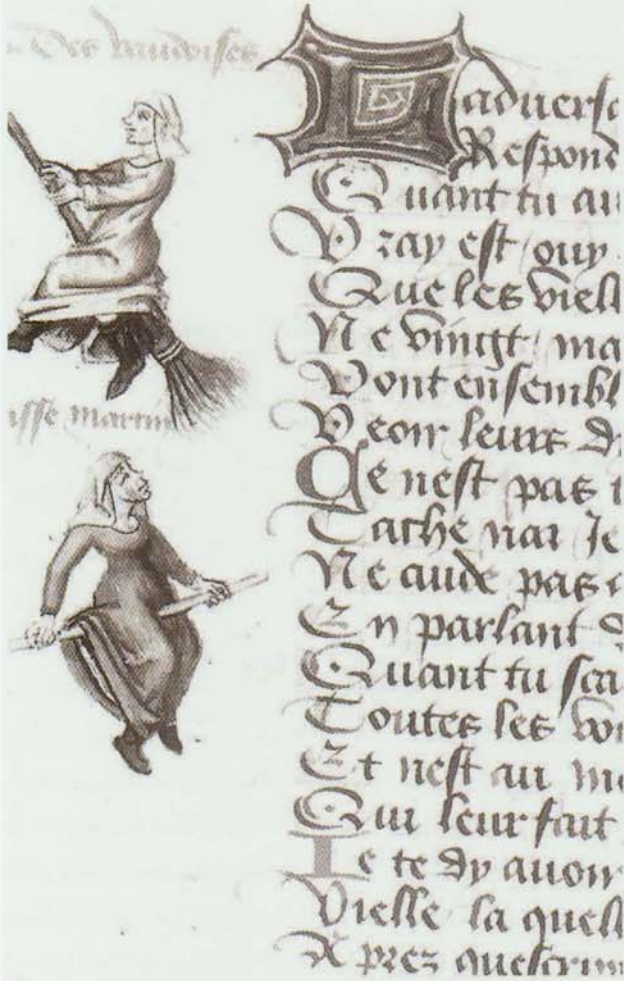 Des vaudoises
Ladverse
Respond
Quant tu au
Vray est / ouy
Que les viell
Ne vingt / ma
Vont ensembl
Veoir leurs d
Ce nest pas
Cache nay Je
Ne cude pas
En parlant d
Quant tu sca
Toutes les vo
Et nest au mo
Qui leur fait
Je te dy avoir
Vielle la quell
A prez quescrim
isse martin